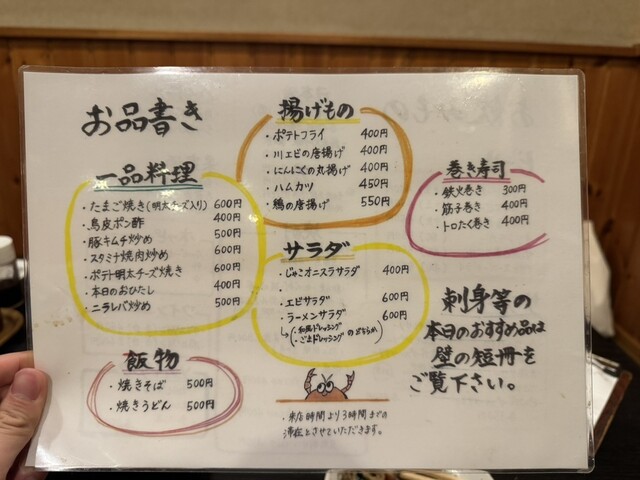 お品書き
一品料理
・たまご焼き(明太チーズ入り) 600円
・鳥皮ポン酢 400円
・豚キムチ炒め 500円
・スタミナ焼肉炒め 600円
・ポテト明太チーズ焼き 600円
・本日のおひたし 400円
・ニラレバ炒め 500円
飯物
・焼きそば 500円
・焼きうどん 500円
揚げもの
・ポテトフライ 400円
・川エビの唐揚げ 400円
・にんにくの丸揚げ 400円
・ハムカツ 450円
・鶏の唐揚げ 550円
サラダ
・じゃこオニスラサラダ 400円
・
・エビサラダ 600円
・ラーメンサラダ 600円
(・和風ドレッシング のどちらか
・ごまドレッシング)
・来店時間より3時間までの
滞在とさせていただきます。
巻き寿司
・鉄火巻き 300円
・筋子巻き 400円
・トロたく巻き 400円
刺身等の
本日のおすすめ品は
壁の短冊を
ご覧下さい。